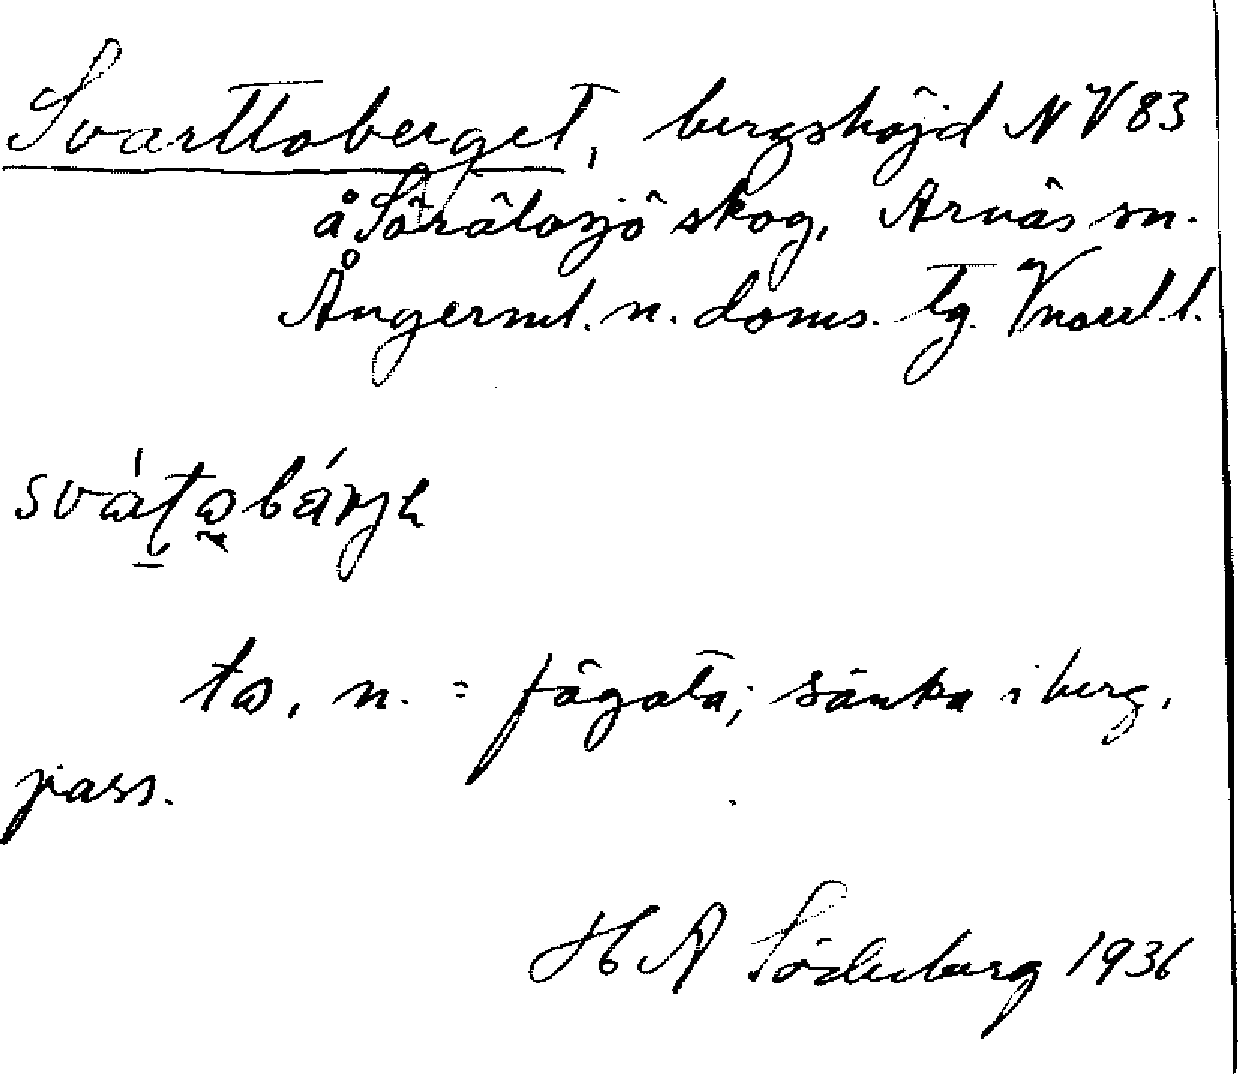 Svarttoberget, bergshöjd NV 83
å Sörälasjö skog, Arnäs sn.
Ångerml. n. doms. tg. Vnorrl. l.
ta, n. = fägata; sänka i berg,
pass.
H A Söderberg 1936